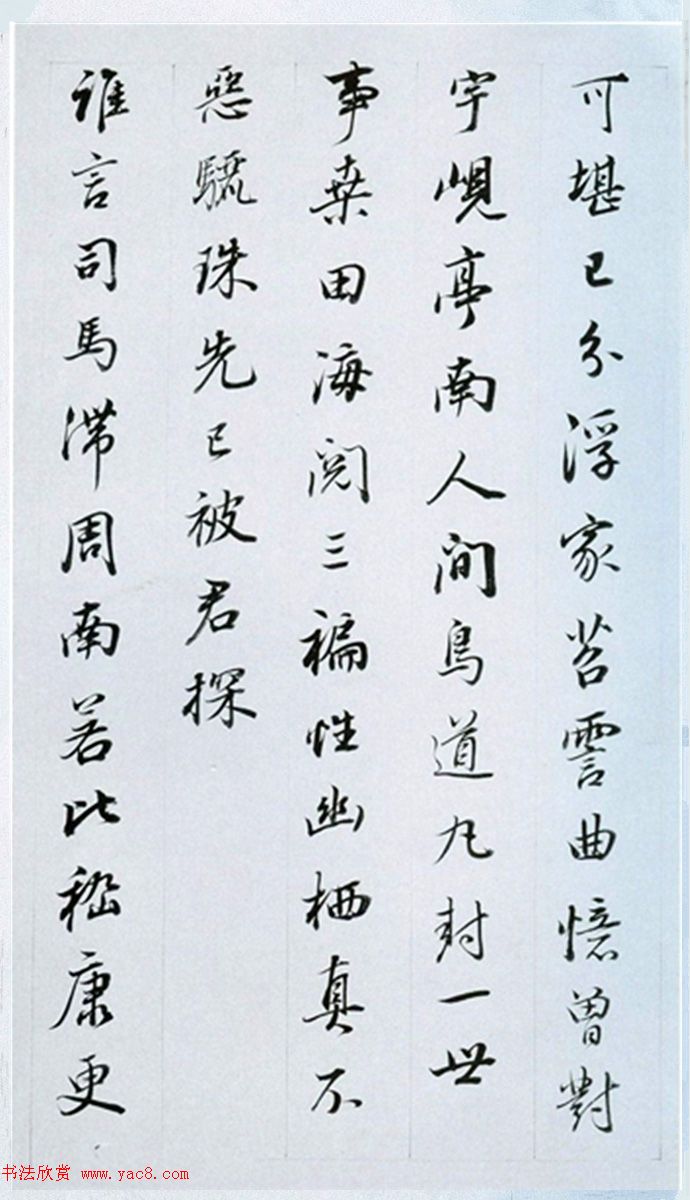 可堪已分浮家苕霅曲憶曾對
宇峴亭南人間鳥道九封一世
事桒田海閱三褊性幽栖真不
惡驪珠先已被君探
誰言司馬滯周南若比嵇康更
书法欣赏 www.yac8.com